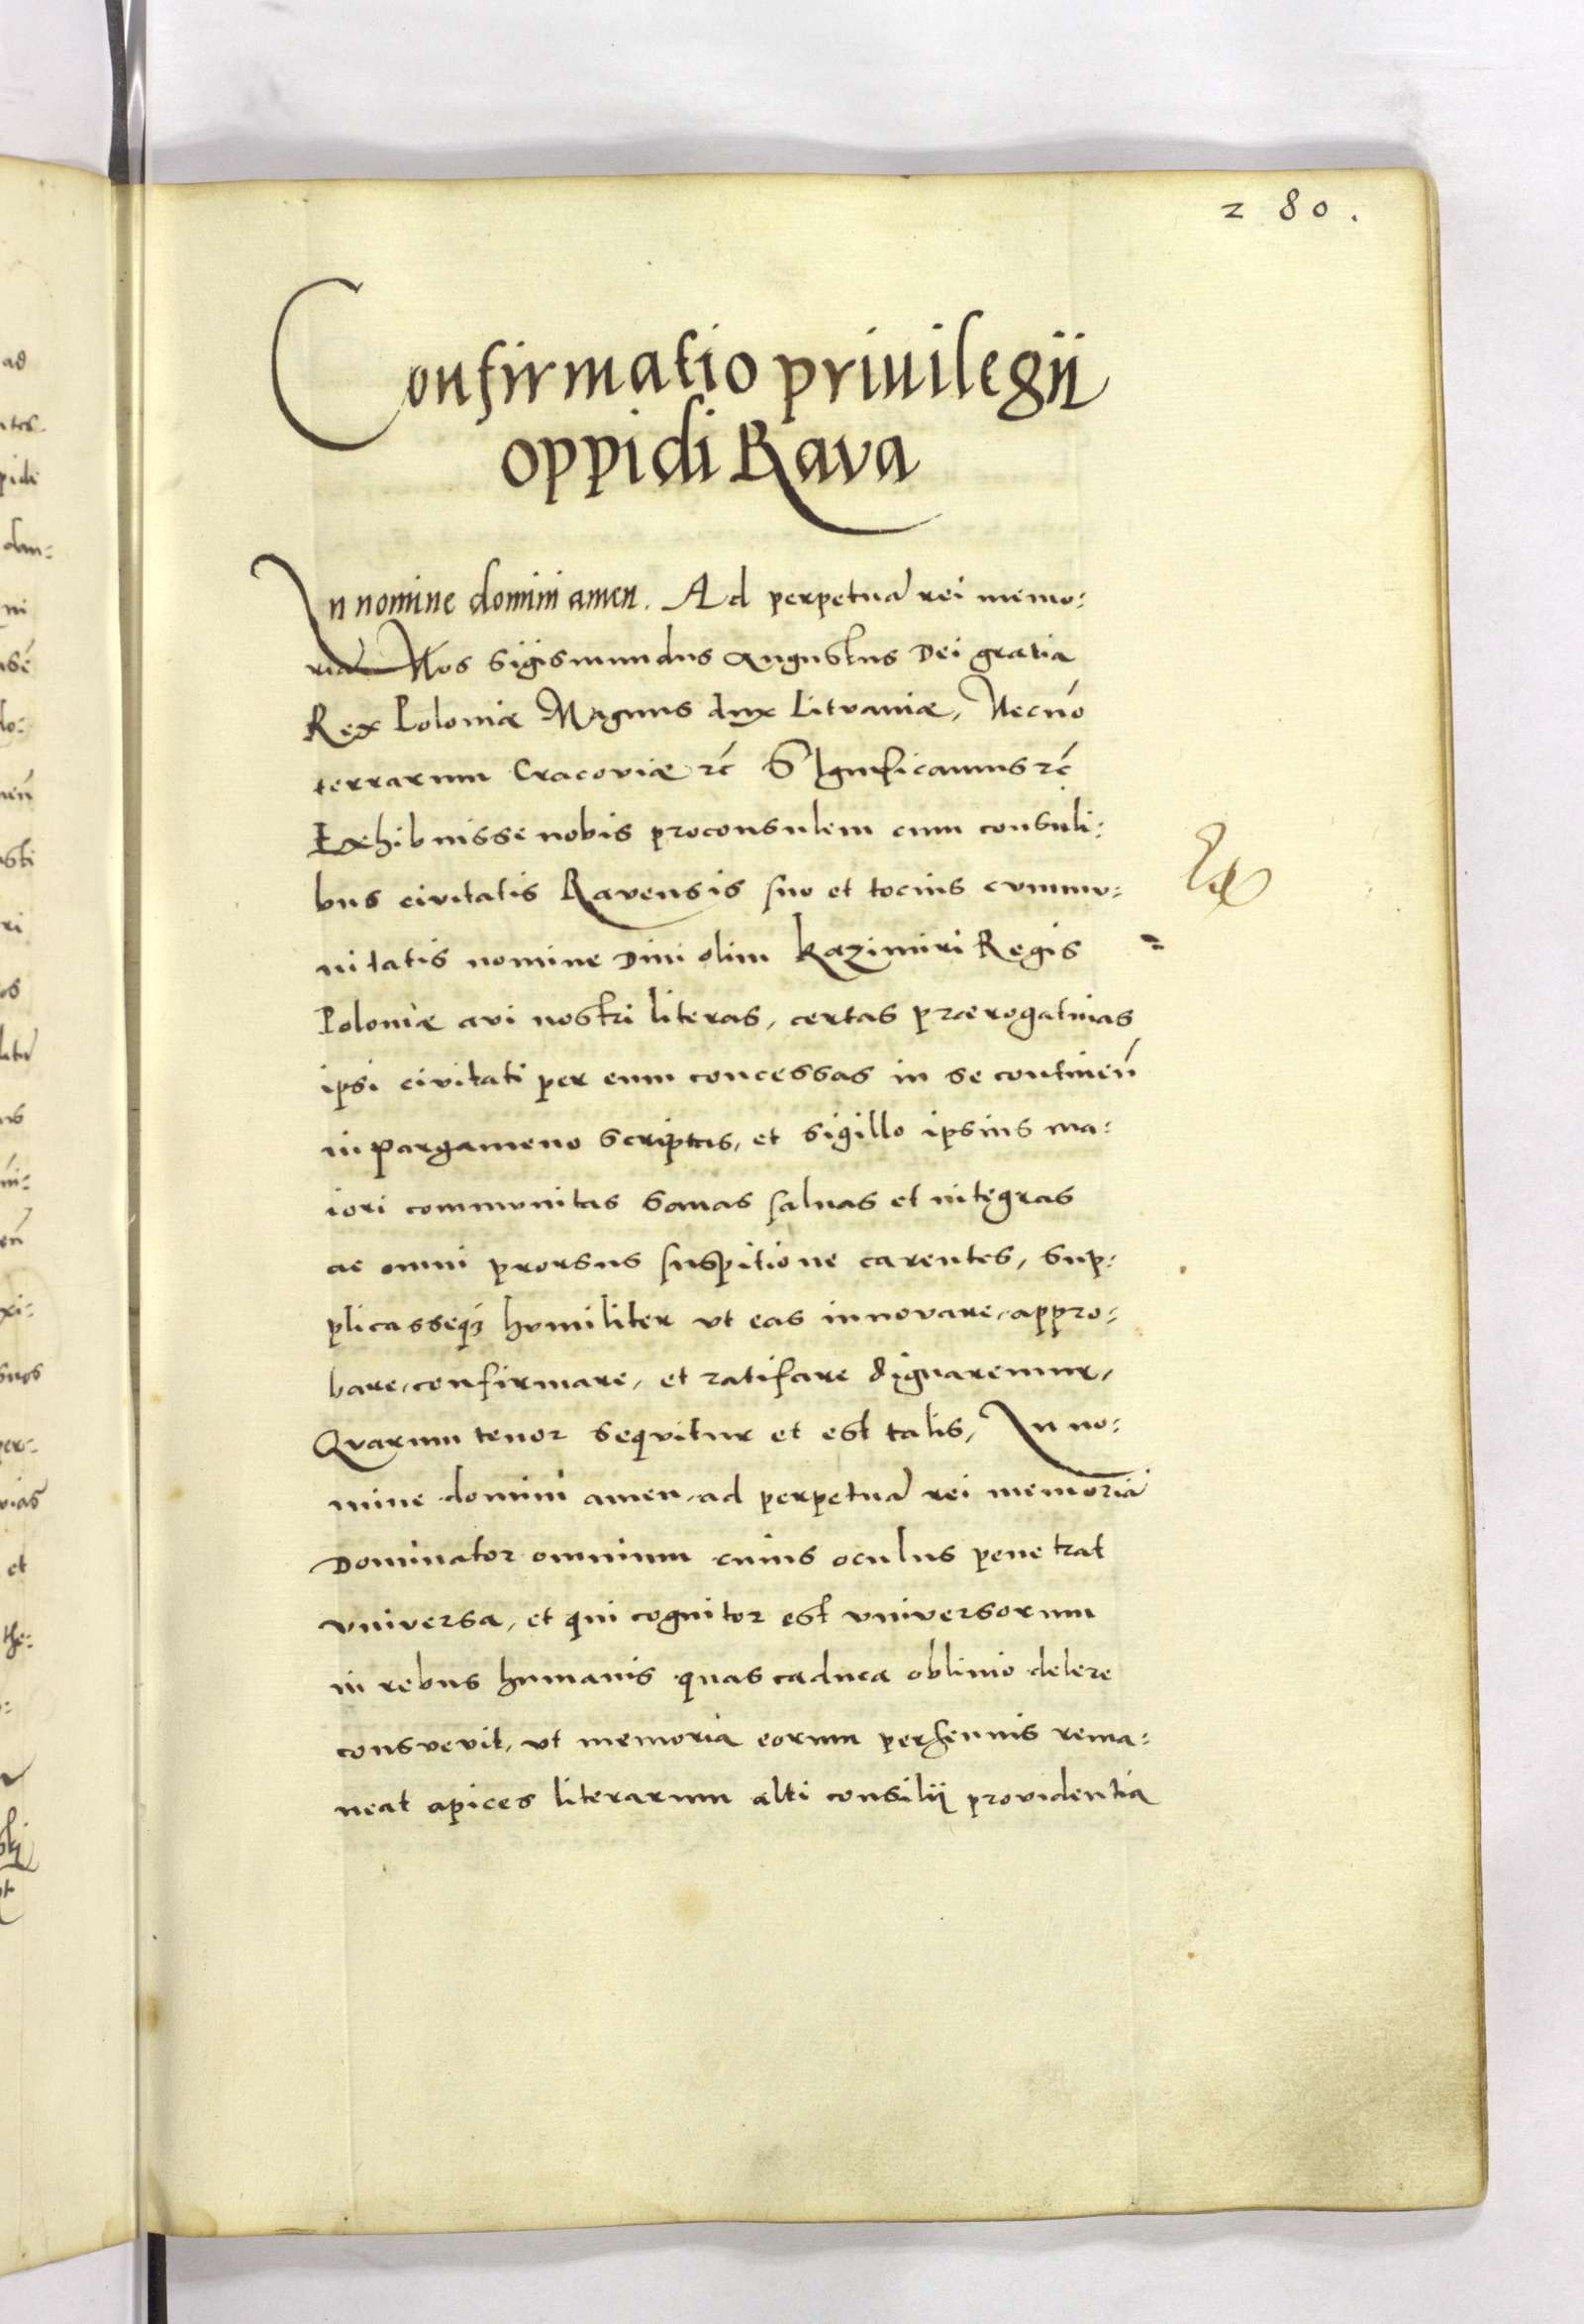 280.
Confirmatio priuilegii
oppidi Rava
In nomine domini amen. Ad perpetuã rei memo:
riã Nos Sigismundus Augustus Dei gratia
Rex Poloniæ Magnus dux Litvaniæ, Necnõ
terrarum Cracoviæ zc̃ Significamus zc̃
Exhibuisse nobis proconsulem cum consuli:
bus civitatis Ravensis suo et tocius commu:
nitatis nomine Divi olim Kazimiri Regis
Poloniæ avi nostri literas, certas prærogatiuas
ipsi civitati per eum concessas in se contineñ
in pargameno scriptas, et sigillo ipsius ma:
iori communitas sanas saluas et integras
ac omni prorsus suspitione carentes, sup:
plicasseq3 humiliter vt eas innovare, appro:
bare, confirmare, et ratifare dignaremur,
Qvarum tenor seqvitur et est talis, In no:
mine domini amen, ad perpetuã rei memoriã
Dominator omnium cuius oculus penetrat
vniversa, et qui cognitor est vniversorum
in rebus humanis quas caduca obliuio delere
consvevit, vt memoria eorum perhennis rema:
neat apices literarum alti consilii providentia